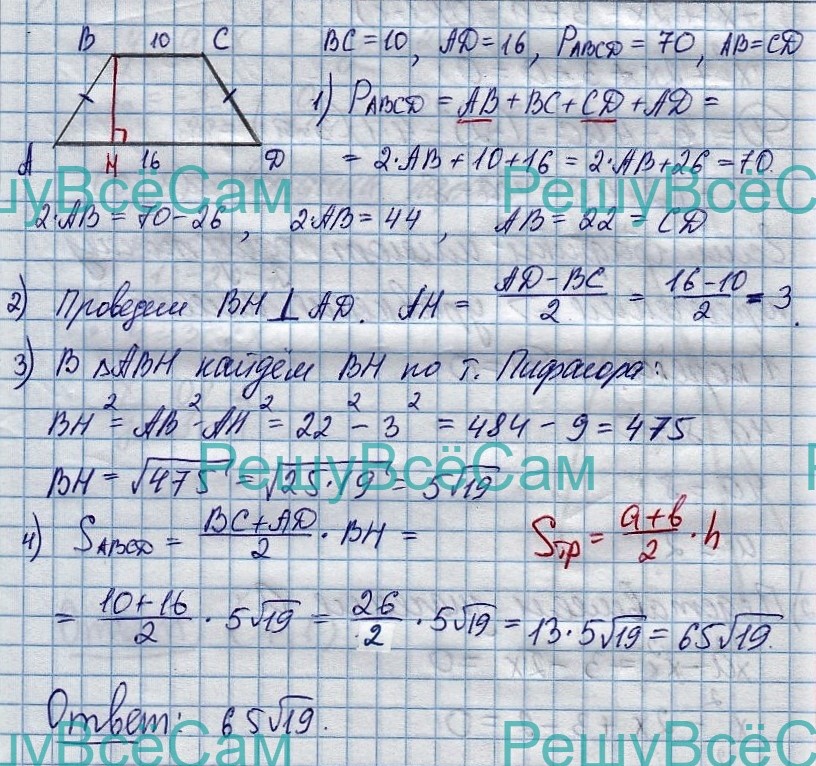 B 10 C
BC = 10, AD = 16, P_ABCD = 70, AB = CD
1) P_ABCD = AB + BC + CD + AD =
A H 16 D
= 2·AB + 10 + 16 = 2·AB + 26 = 70.
РешуВсёСам РешуВсёСам
2·AB = 70 - 26, 2·AB = 44, AB = 22 = CD
2) Проведем BH ⊥ AD. AH = (AD - BC)/2 = (16 - 10)/2 = 3.
3) В △ABH найдём BH по т. Пифагора:
BH² = AB² - AH² = 22² - 3² = 484 - 9 = 475
РешуВсёСам
BH = √475 = √25·19 = 5√19
4) S_ABCD = (BC + AD)/2 · BH =
S_тр = (a + b)/2 · h
= (10 + 16)/2 · 5√19 = 26/2 · 5√19 = 13·5√19 = 65√19.
Ответ: 65√19.
РешуВсёСам РешуВсёСам